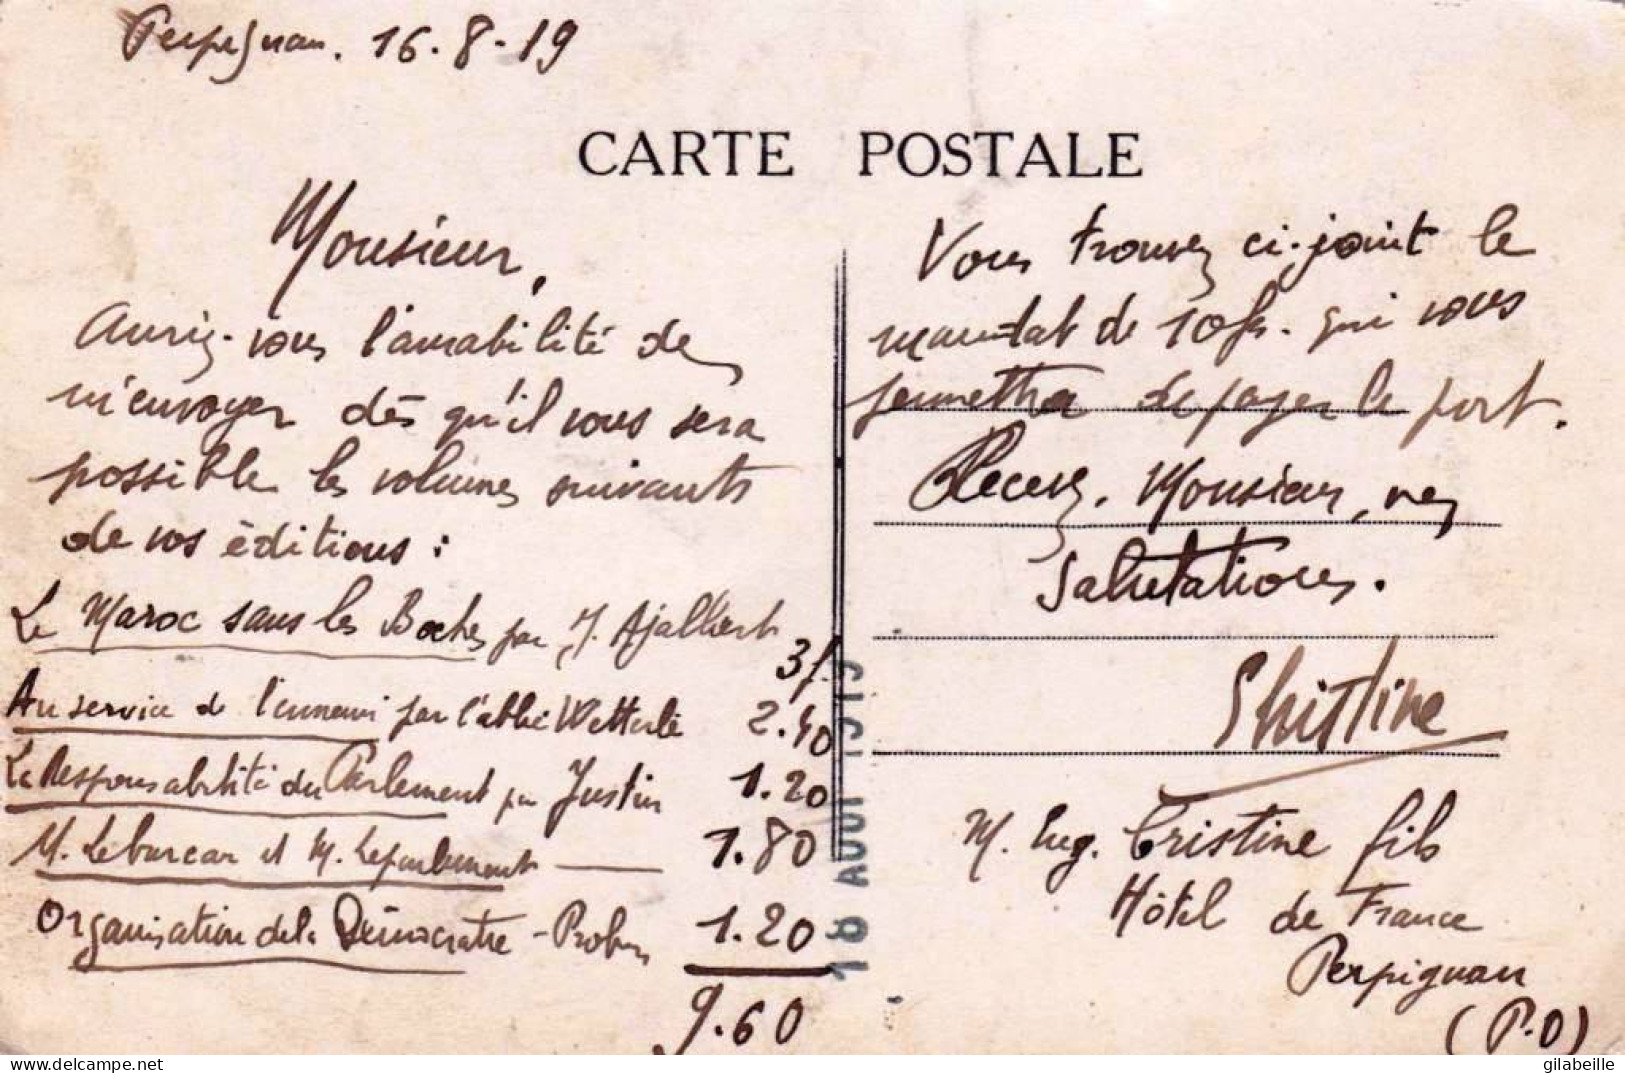 Perpignan. 16-8-19
CARTE POSTALE
Monsieur,
Auriez-vous l'amabilité de
m'envoyer dès qu'il vous sera
possible les volumes suivants
de vos éditions :
Le Maroc sans les Boches par J. Ajalbert
3f.
Au service de l'ennemi par l'abbé Wetterlé 2.40
La Responsabilité du Parlement par Justin 1.20
M. Leburcar et M. Leparlement — 1.80
Organisation de la Démocratie - Probus 1.20
9.60
Vous trouvez ci-joint le
mandat de 10 frs. qui vous
permettra de payer le port.
Recevez, Monsieur, mes
Salutations.
M. Eug. Cristine fils
Hôtel de France
Perpignan
(P.O)
18 AOUT 1919
gilabeille